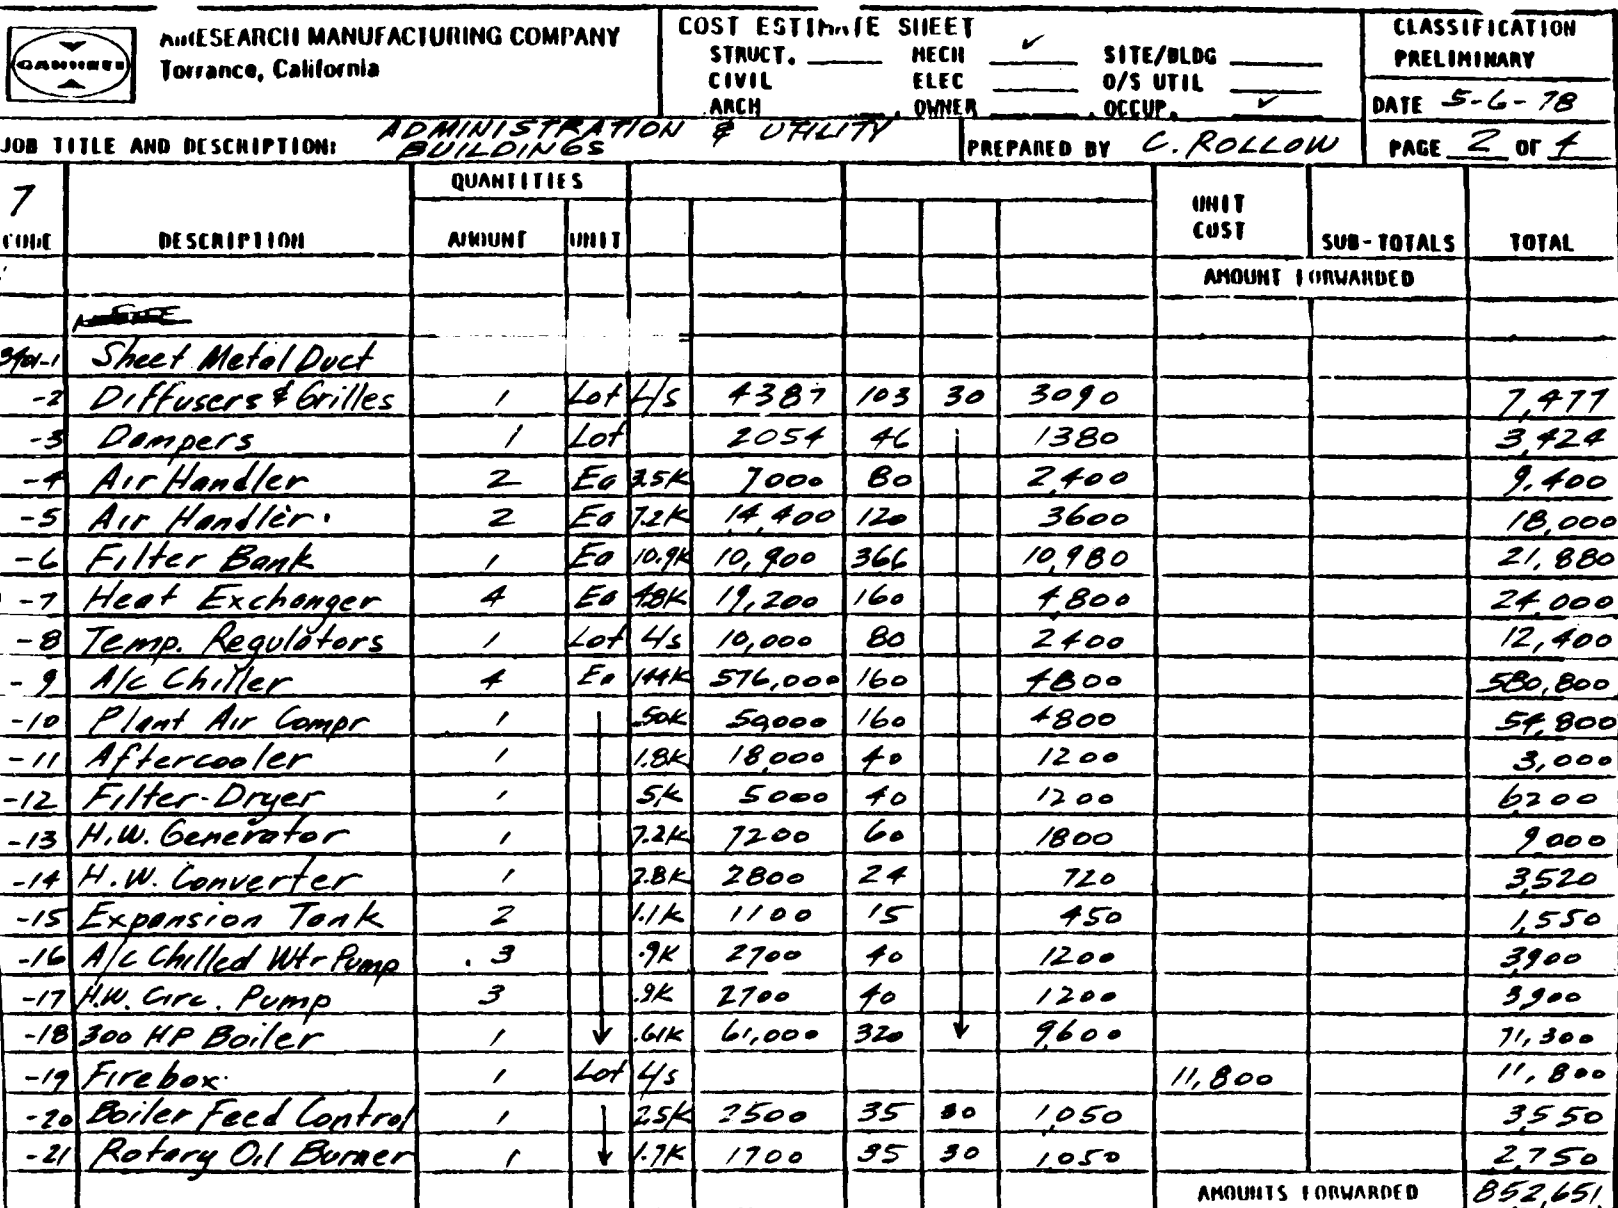 GARRETT
AIRESEARCH MANUFACTURING COMPANY
Torrance, California
COST ESTIMATE SHEET
STRUCT. ____ MECH ✓ SITE/BLDG ____
CIVIL ELEC ____ O/S UTIL ____
ARCH ____ OWNER ____ OCCUP. ✓
CLASSIFICATION
PRELIMINARY
DATE 5-6-78
JOB TITLE AND DESCRIPTION: ADMINISTRATION & UTILITY BUILDINGS
PREPARED BY C. ROLLOW
PAGE 2 OF 4
7
QUANTITIES
CODE DESCRIPTION AMOUNT UNIT UNIT COST SUB-TOTALS TOTAL
AMOUNT FORWARDED
3401-1 Sheet Metal Duct
-2 Diffusers & Grilles 1 Lot L/s 4387 103 30 3090 7,477
-3 Dampers 1 Lot 2054 46 1380 3,424
-4 Air Handler 2 Ea 3.5K 7000 80 2,400 9,400
-5 Air Handler 2 Ea 7.2K 14,400 120 3600 18,000
-6 Filter Bank 1 Ea 10.9K 10,900 366 10,980 21,880
-7 Heat Exchanger 4 Ea 4.8K 19,200 160 4,800 24,000
-8 Temp. Regulators 1 Lot L/s 10,000 80 2400 12,400
-9 A/c Chiller 4 Ea 144K 576,000 160 4800 580,800
-10 Plant Air Compr 1 50K 50,000 160 4800 54,800
-11 Aftercooler 1 1.8K 18,000 40 1200 3,000
-12 Filter-Dryer 1 5K 5000 40 1200 6200
-13 H.W. Generator 1 7.2K 7200 60 1800 9000
-14 H.W. Converter 1 2.8K 2800 24 720 3,520
-15 Expansion Tank 2 1.1K 1100 15 450 1,550
-16 A/c Chilled Wtr Pump 3 .9K 2700 40 1200 3900
-17 H.W. Circ. Pump 3 .9K 2700 40 1200 3900
-18 300 HP Boiler 1 .61K 61,000 320 9,600 71,300
-19 Firebox 1 Lot L/s 11,800 11,800
-20 Boiler Feed Control 1 2.5K 2500 35 30 1,050 3,550
-21 Rotary Oil Burner 1 1.7K 1700 35 30 1,050 2,750
AMOUNTS FORWARDED 852,651